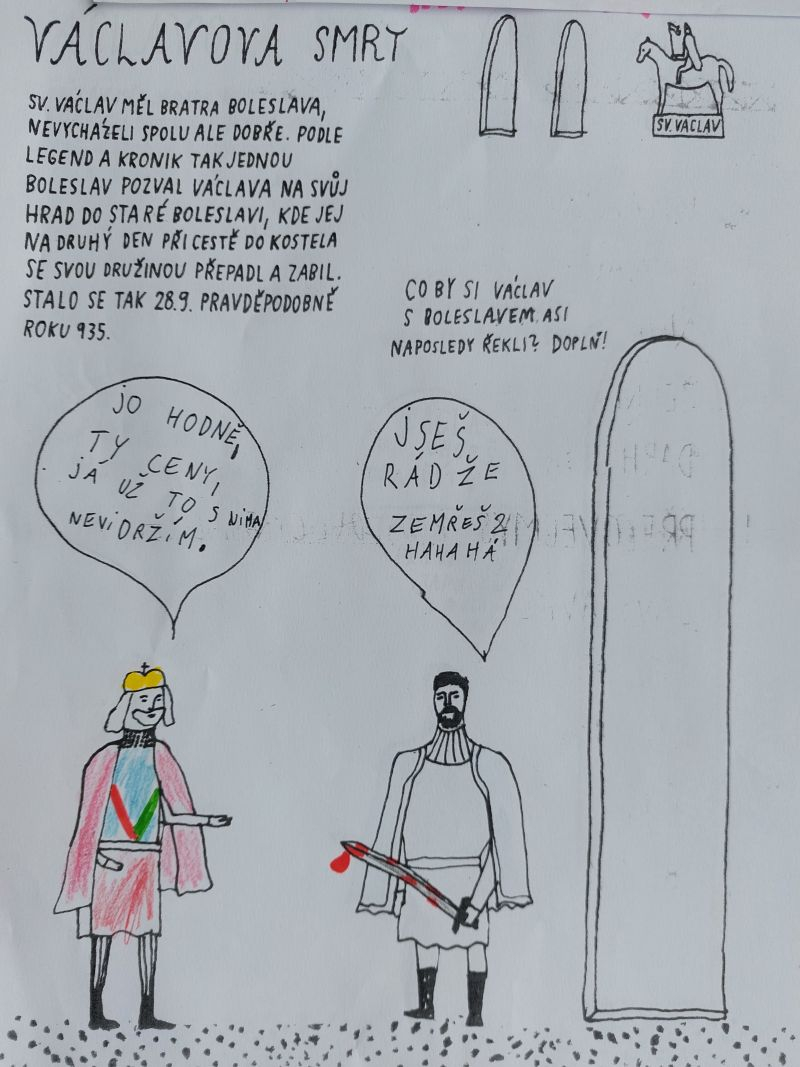 VÁCLAVOVA SMRT
SV. VÁCLAV
SV. VÁCLAV MĚL BRATRA BOLESLAVA,
NEVYCHÁZELI SPOLU ALE DOBŘE. PODLE
LEGEND A KRONIK TAK JEDNOU
BOLESLAV POZVAL VÁCLAVA NA SVŮJ
HRAD DO STARÉ BOLESLAVI, KDE JEJ
NA DRUHÝ DEN PŘI CESTĚ DO KOSTELA
SE SVOU DRUŽINOU PŘEPADL A ZABIL.
STALO SE TAK 28.9. PRAVDĚPODOBNĚ
ROKU 935.
CO BY SI VÁCLAV
S BOLESLAVEM ASI
NAPOSLEDY ŘEKLI? DOPLŇ!
JO HODNĚ,
TY CENY,
JÁ UŽ TO S NIMA
NEVIDRŽÍM.
JSEŠ
RÁD ŽE
ZEMŘEŠ?
HAHAHÁ